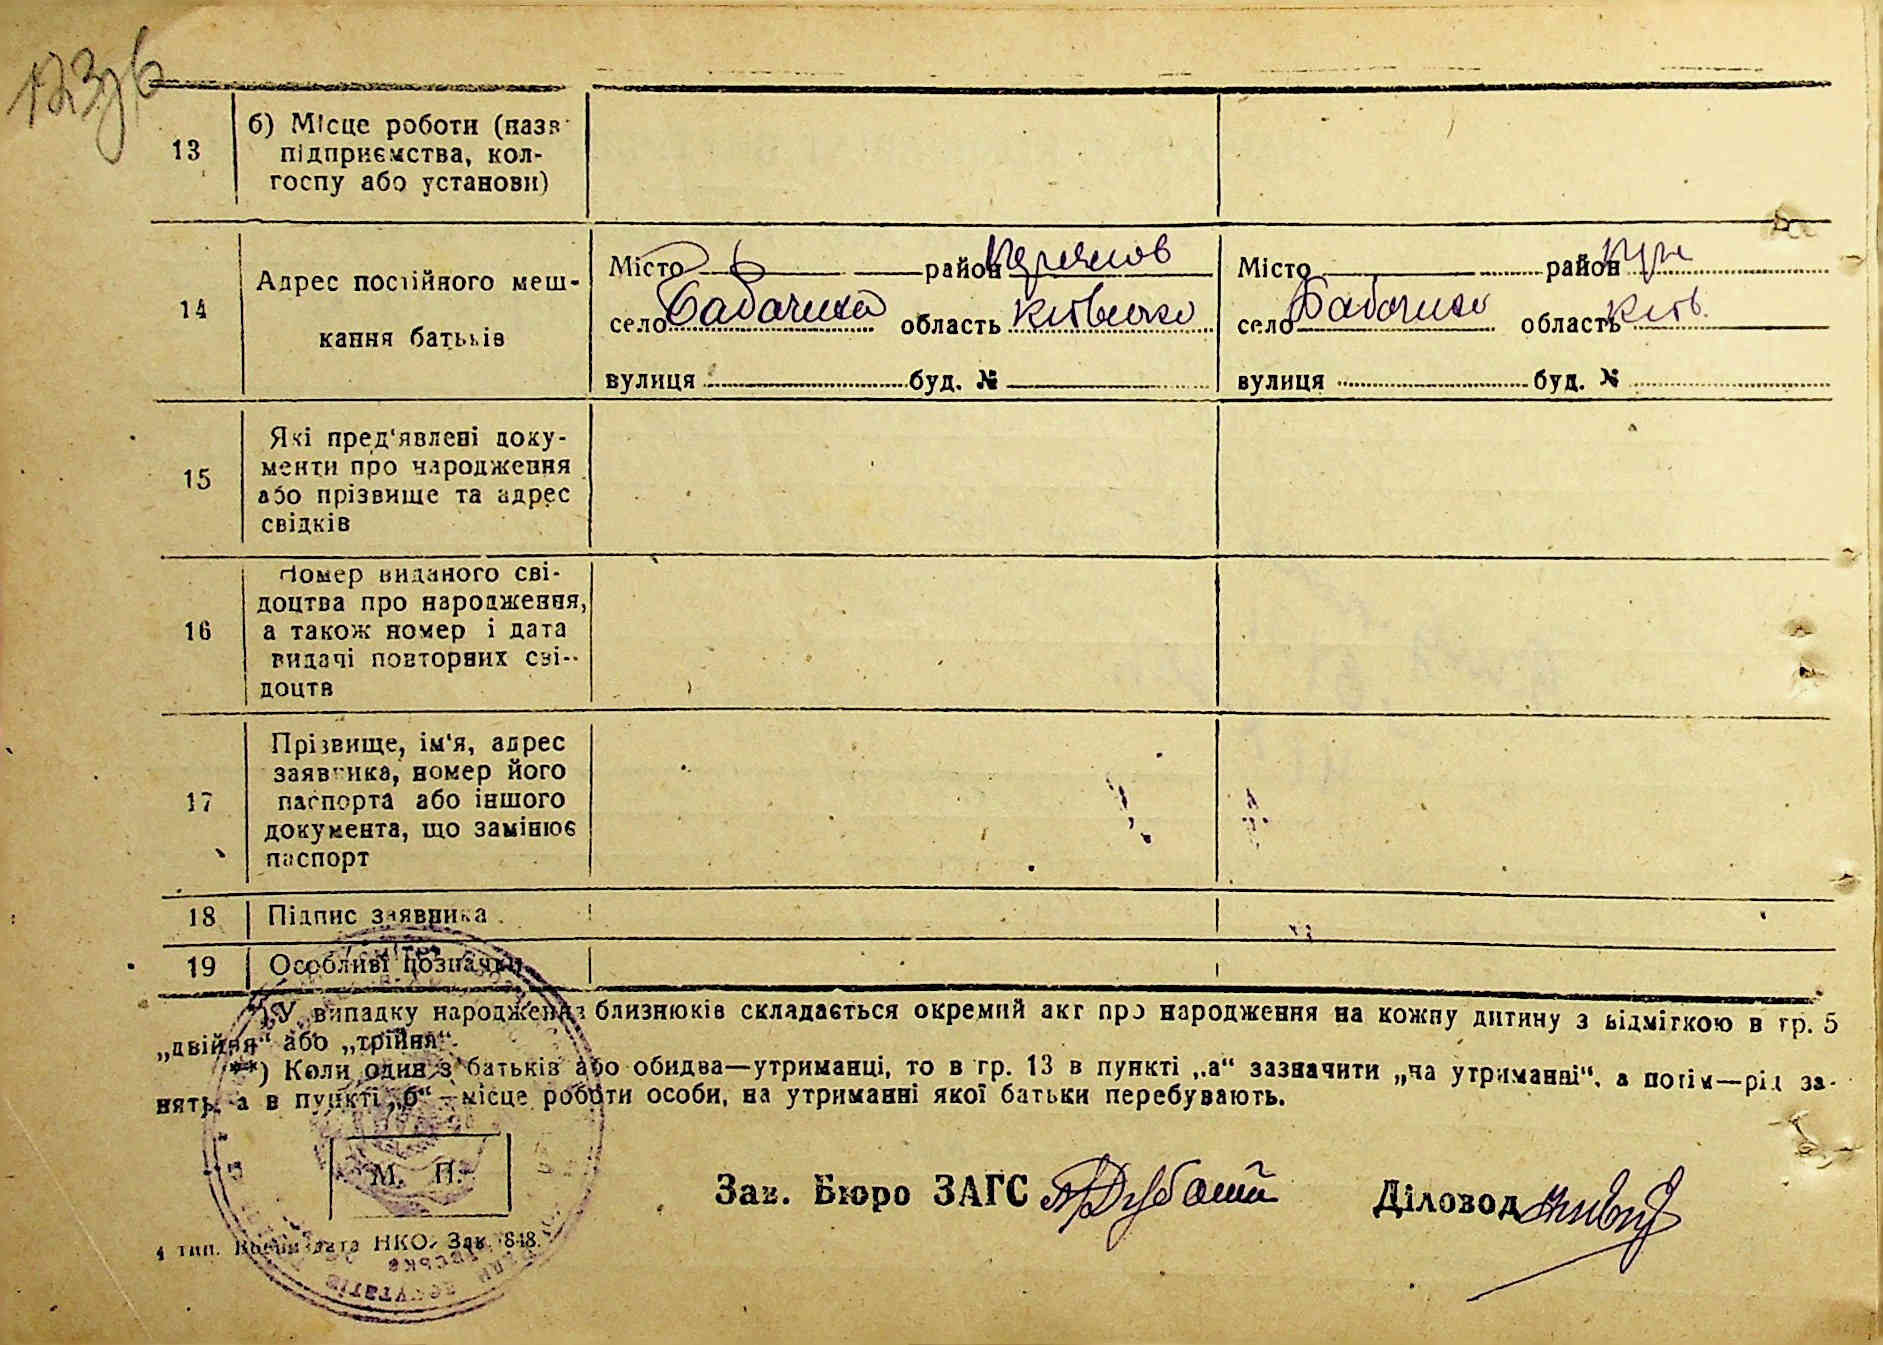 13
б) Місце роботи (назв
підприємства, кол-
госпу або установи)
14
Адрес постійного меш-
кання батьків
Місто район
село Бабачиха область Київська
вулиця буд. №
Місто район
село Бабачиха область Київ.
вулиця буд. №
15
Які пред'явлені доку-
менти про народження
або прізвище та адрес
свідків
16
Номер виданого сві-
доцтва про народження,
а також номер і дата
видачі повторних сві-
доцтв
17
Прізвище, ім'я, адрес
заявника, номер його
паспорта або іншого
документа, що замінює
паспорт
18 Підпис заявника
19 Особливі позначки
*) У випадку народження близнюків складається окремий акт про народження на кожну дитину з відміткою в гр. 5
„двійня“ або „трійня“.
**) Коли один з батьків або обидва—утриманці, то в гр. 13 в пункті „а“ зазначити „на утриманні“, а потім—рід за-
нять, а в пункті „б“—місце роботи особи, на утриманні якої батьки перебувають.
М. П.
Зав. Бюро ЗАГС
Діловод
4 тип. НКО. Зак. 848.